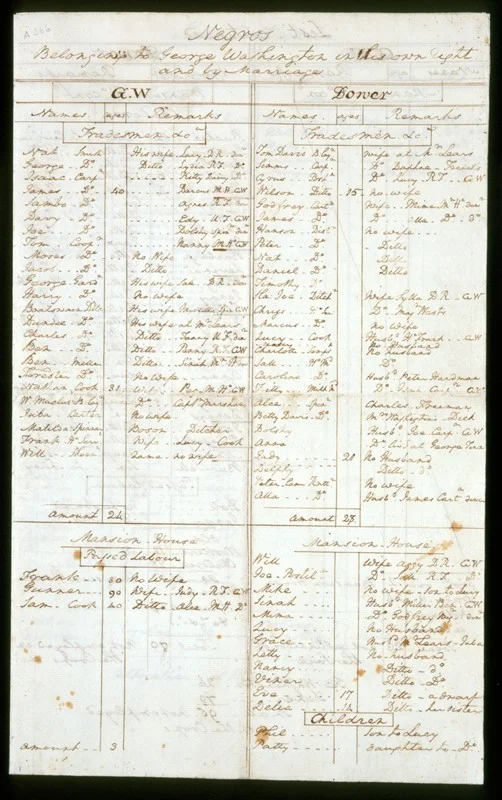 Negros
Belonging to George Washington in his own right
and by Marriage
G.W
Names ages Remarks
Tradesmen &c.
Nat Smith His wife Lucy D.R. dow
George Do Ditto Lydia R.F. Do
Isaac Carpr Kitty Dairy Do
James Do 40 Darcus M.H. GW
Sambo Do Agnes R.F. dow
Davy Do Edy U.F. GW
Joe Do Dolshy Spinr dow
Tom Coopr Nanny M.H. GW
Moses Do No Wife
Jacob Do Ditto
George Gardr His wife Sal D.R. dow
Harry Do No wife
Boatswain Ditchr His wife
Dundee Do His wife at Mr Lears
Charles Do Ditto Fanny U.F. dow
Ben Do Ditto Penny R.F. GW
Ben Miller Ditto Sinah
Forrester Do No Wife
Nathan Cook 31 Wife Peg M.H. GW
W. Muclus B. Lay Do Captn Marshall
Juba Carter No wife
Matilda Spinner Boson Ditcher
Frank Ho Servt Wife Lucy Cook
Will Shoer Lame no wife
Amount 24
Mansion House
Passed Labour
Frank 80 No Wife
Gunner 90 Wife Judy R.F. GW
Sam Cook 40 Ditto Alce M.H. Do
Amount 3
Dower
Names ages Remarks
Tradesmen &c.
Tom Davis B lay Wife at Mr Lears
Simms Carpr Do Daphne French's
Cyrus Postn Do Lucy R.F. GW
Wilson Ditto 15 no wife
Godfrey Cartr Wife Mima M.Ho dow
James Do Do Alla Do Do
Hanson Distr no wife
Peter Do Ditto
Nat Do Ditto
Daniel Do Ditto
Timothy Do
Ha. Joe Ditchr Wife Sylla D.R. GW
Chriss Ho S. Do May Wests
Marcus Do no wife
Lucy Cook Husbd Ho Frank GW
Charlotte Semps No husband
Sall Ho Md No husband
Caroline Do Husbd Peter Hardman
Kitty Milk Md Do Isaac Carpr GW
Alce Spinr Charles Freeman
Betty Davis Do Mr Washington's Dick
Dolshy Husbd Joe Carpr GW
Anna Do lives at George Town
Judy 20 No Husband
Delphy Ditto
Peter Lame Knittr No Wife
Alla Do Husbd James Cartr dow
Amount 28
Mansion House
Will Wife Aggy D.R. GW
Joe Postiln Do Sall R.F. Do
Mike No wife son to Lucy
Sinah Husbd Miller Ben GW
Mima Do Godfrey dow
Lucy No Husband
Grace Mr Lears Juba
Letty No husband
Nancy Ditto do
Viner Ditto Do
Eve 17 Ditto a dwarf
Delia 14 Ditto her sister
Children
Phil Son to Lucy
Patty Daughter to Do